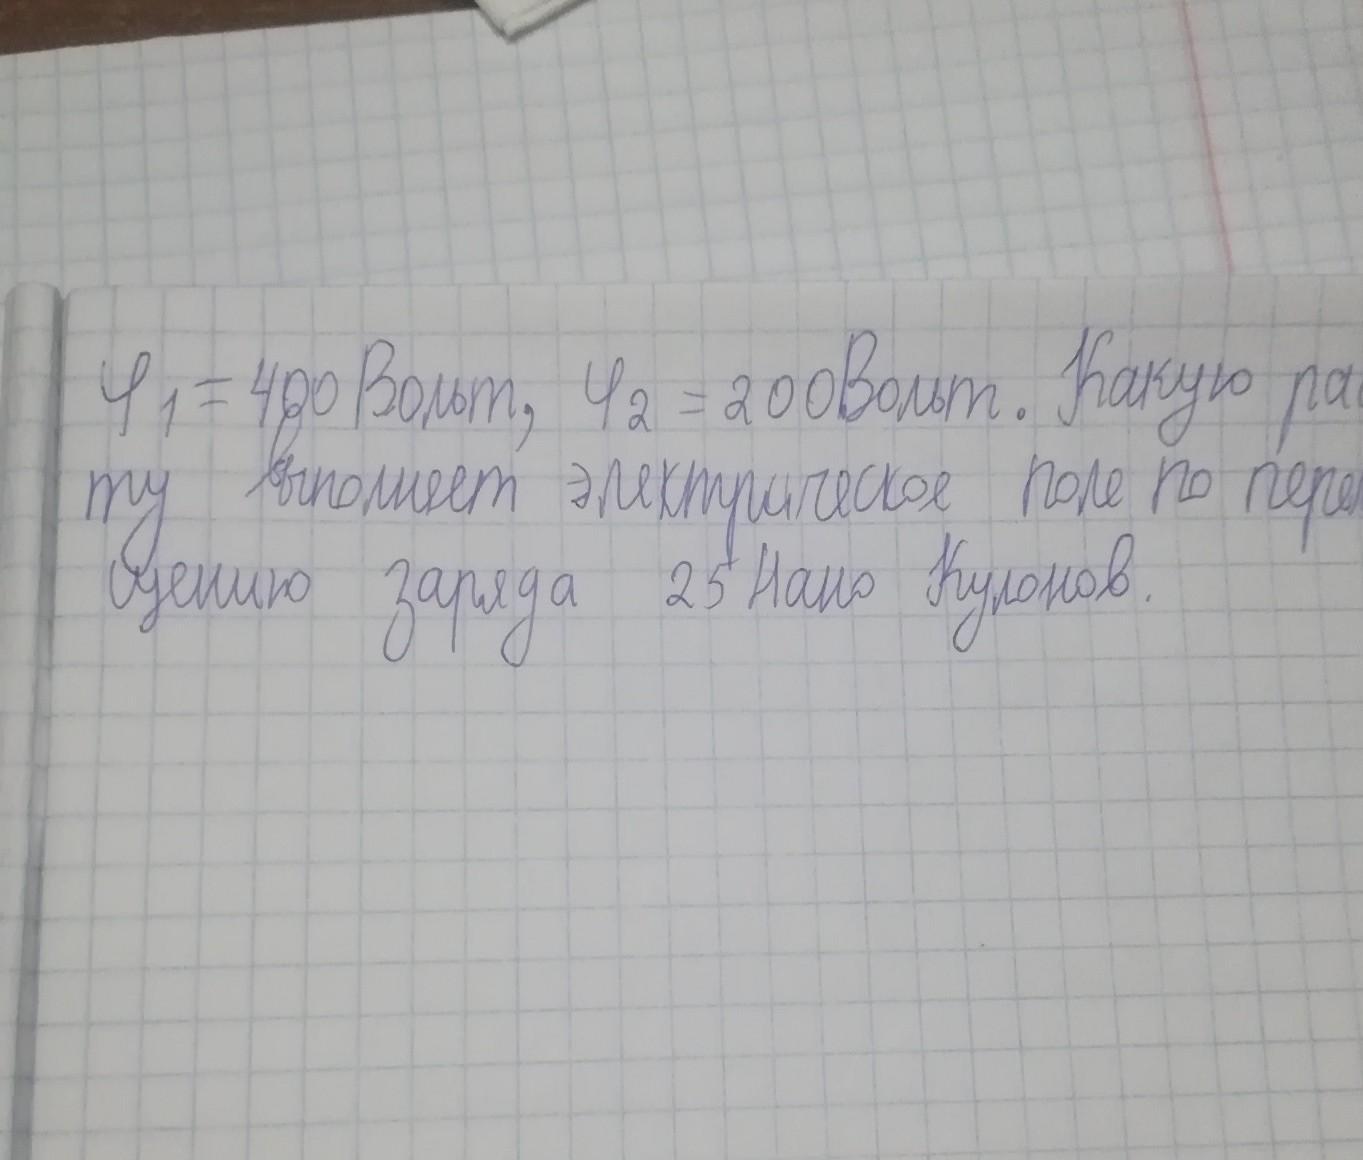 φ1 = 400 Вольт, φ2 = 200 Вольт. Какую ра
ту выполняет электрическое поле по пере
щению заряда 25 Нано Кулонов.